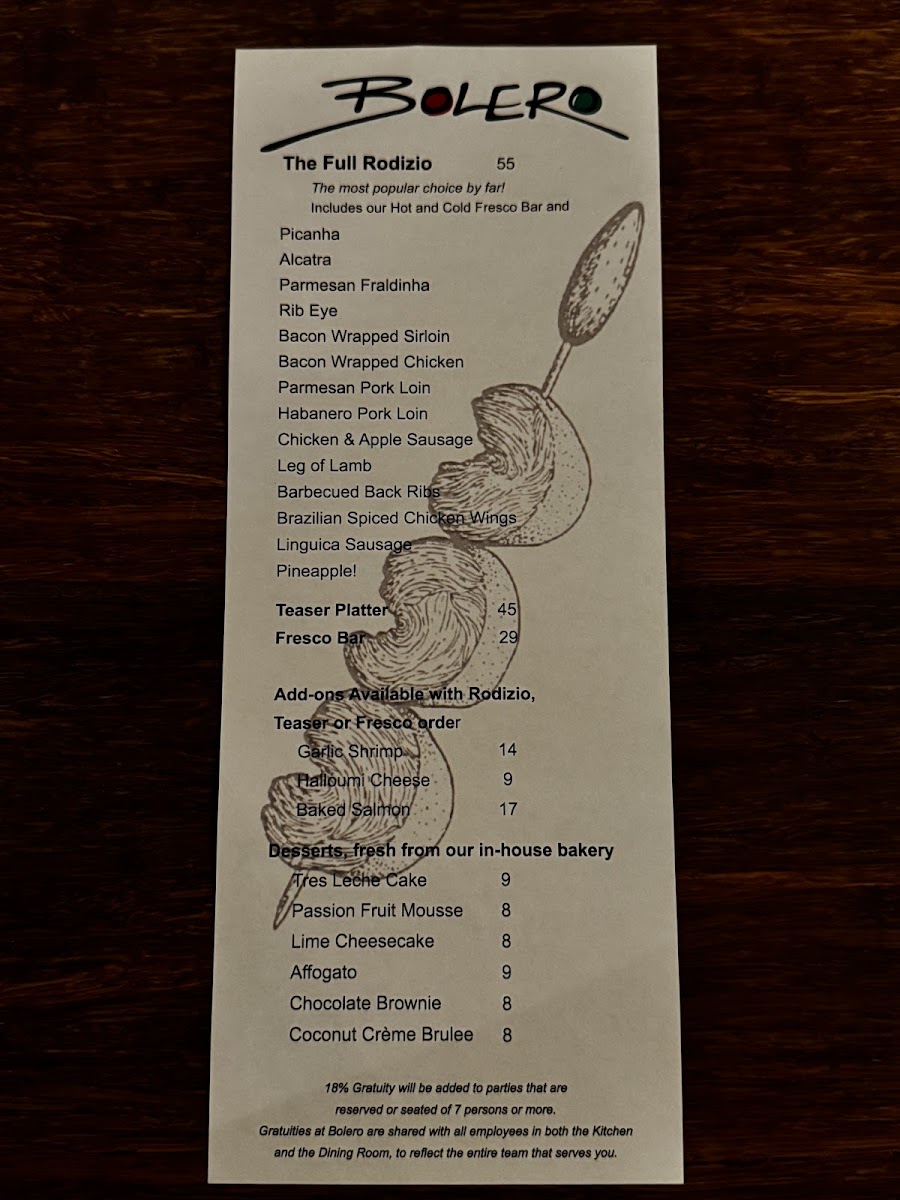 BOLERO
The Full Rodizio 55
The most popular choice by far!
Includes our Hot and Cold Fresco Bar and
Picanha
Alcatra
Parmesan Fraldinha
Rib Eye
Bacon Wrapped Sirloin
Bacon Wrapped Chicken
Parmesan Pork Loin
Habanero Pork Loin
Chicken & Apple Sausage
Leg of Lamb
Barbecued Back Ribs
Brazilian Spiced Chicken Wings
Linguica Sausage
Pineapple!
Teaser Platter 45
Fresco Bar 29
Add-ons Available with Rodizio,
Teaser or Fresco order
Garlic Shrimp 14
Halloumi Cheese 9
Baked Salmon 17
Desserts, fresh from our in-house bakery
Tres Leche Cake 9
Passion Fruit Mousse 8
Lime Cheesecake 8
Affogato 9
Chocolate Brownie 8
Coconut Crème Brulee 8
18% Gratuity will be added to parties that are
reserved or seated of 7 persons or more.
Gratuities at Bolero are shared with all employees in both the Kitchen
and the Dining Room, to reflect the entire team that serves you.